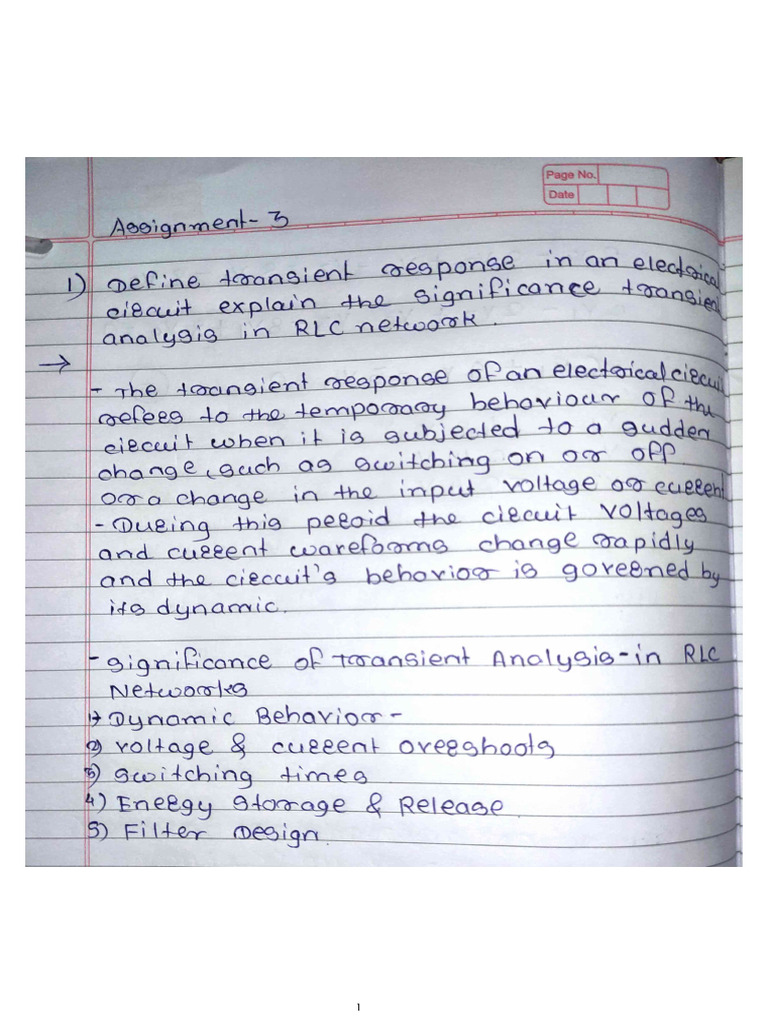 Page No.
Date
Assignment-3
1) Define transient response in an electrical
circuit explain the significance transient
analysis in RLC network.
→
- The transient response of an electrical circuit
refers to the temporary behaviour of the
circuit when it is subjected to a sudden
change, such as switching on or off
or a change in the input voltage or current
- During this peroid the circuit voltages
and current waveforms change rapidly
and the circcuit's behavior is governed by
its dynamic.
- Significance of Transient Analysis-in RLC
Networks
1) Dynamic Behavior -
2) voltage & current overshoots
3) switching times
4) Energy Storage & Release.
5) Filter Design.
1